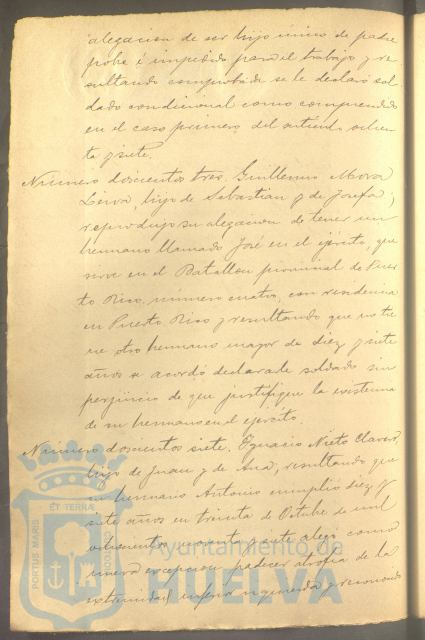 alegacion de ser hijo único de padre
pobre é impedido para el trabajo y re
sultando comprobada se le declaró sol
dado condicional como comprendido
en el caso primero del artículo ochen
ta y siete.
Número doscientos tres. Guillermo Mora
hijo de Sebastian y de Josefa;
reprodujo su alegacion de tener un
hermano llamado José en el ejército, que
sirve en el Batallon provincial de Puer
to Rico, número cuatro, con residencia
en Puerto Rico y resultando que no tie
ne otro hermano mayor de diez y siete
años se acordó declararle soldado sin
perjuicio de que justifique la existencia
de su hermano en el ejército.
Número doscientos siete. Ignacio Nieto Clavero,
hijo de Juan y de Ana, resultando que
su hermano Antonio cumplió diez y
siete años en treinta de Octubre de mil
ochocientos noventa y siete alegó como
nueva excepcion padecer atrofia de la
extremidad inferior izquierda y reconocido
ET TERRAE
PORTUS MARIS
CUSTODIA
Ayuntamiento de
HUELVA